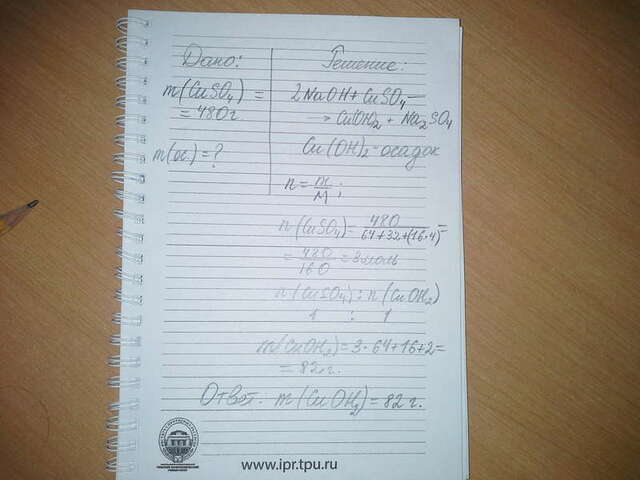 Дано:
m(CuSO₄) =
= 480г
m(ос.) = ?
Решение:
2NaOH + CuSO₄ —
→ CuOH₂ + Na₂SO₄
Cu(OH)₂ - осадок
n = m/M;
n(CuSO₄) = 480/64+32+(16·4) =
= 480/160 = 3 моль
n(CuSO₄) : n(CuOH₂)
1 : 1
m(CuOH₂) = 3·64+16+2 =
= 82 г.
Ответ. m(CuOH₂) = 82 г.
www.ipr.tpu.ru